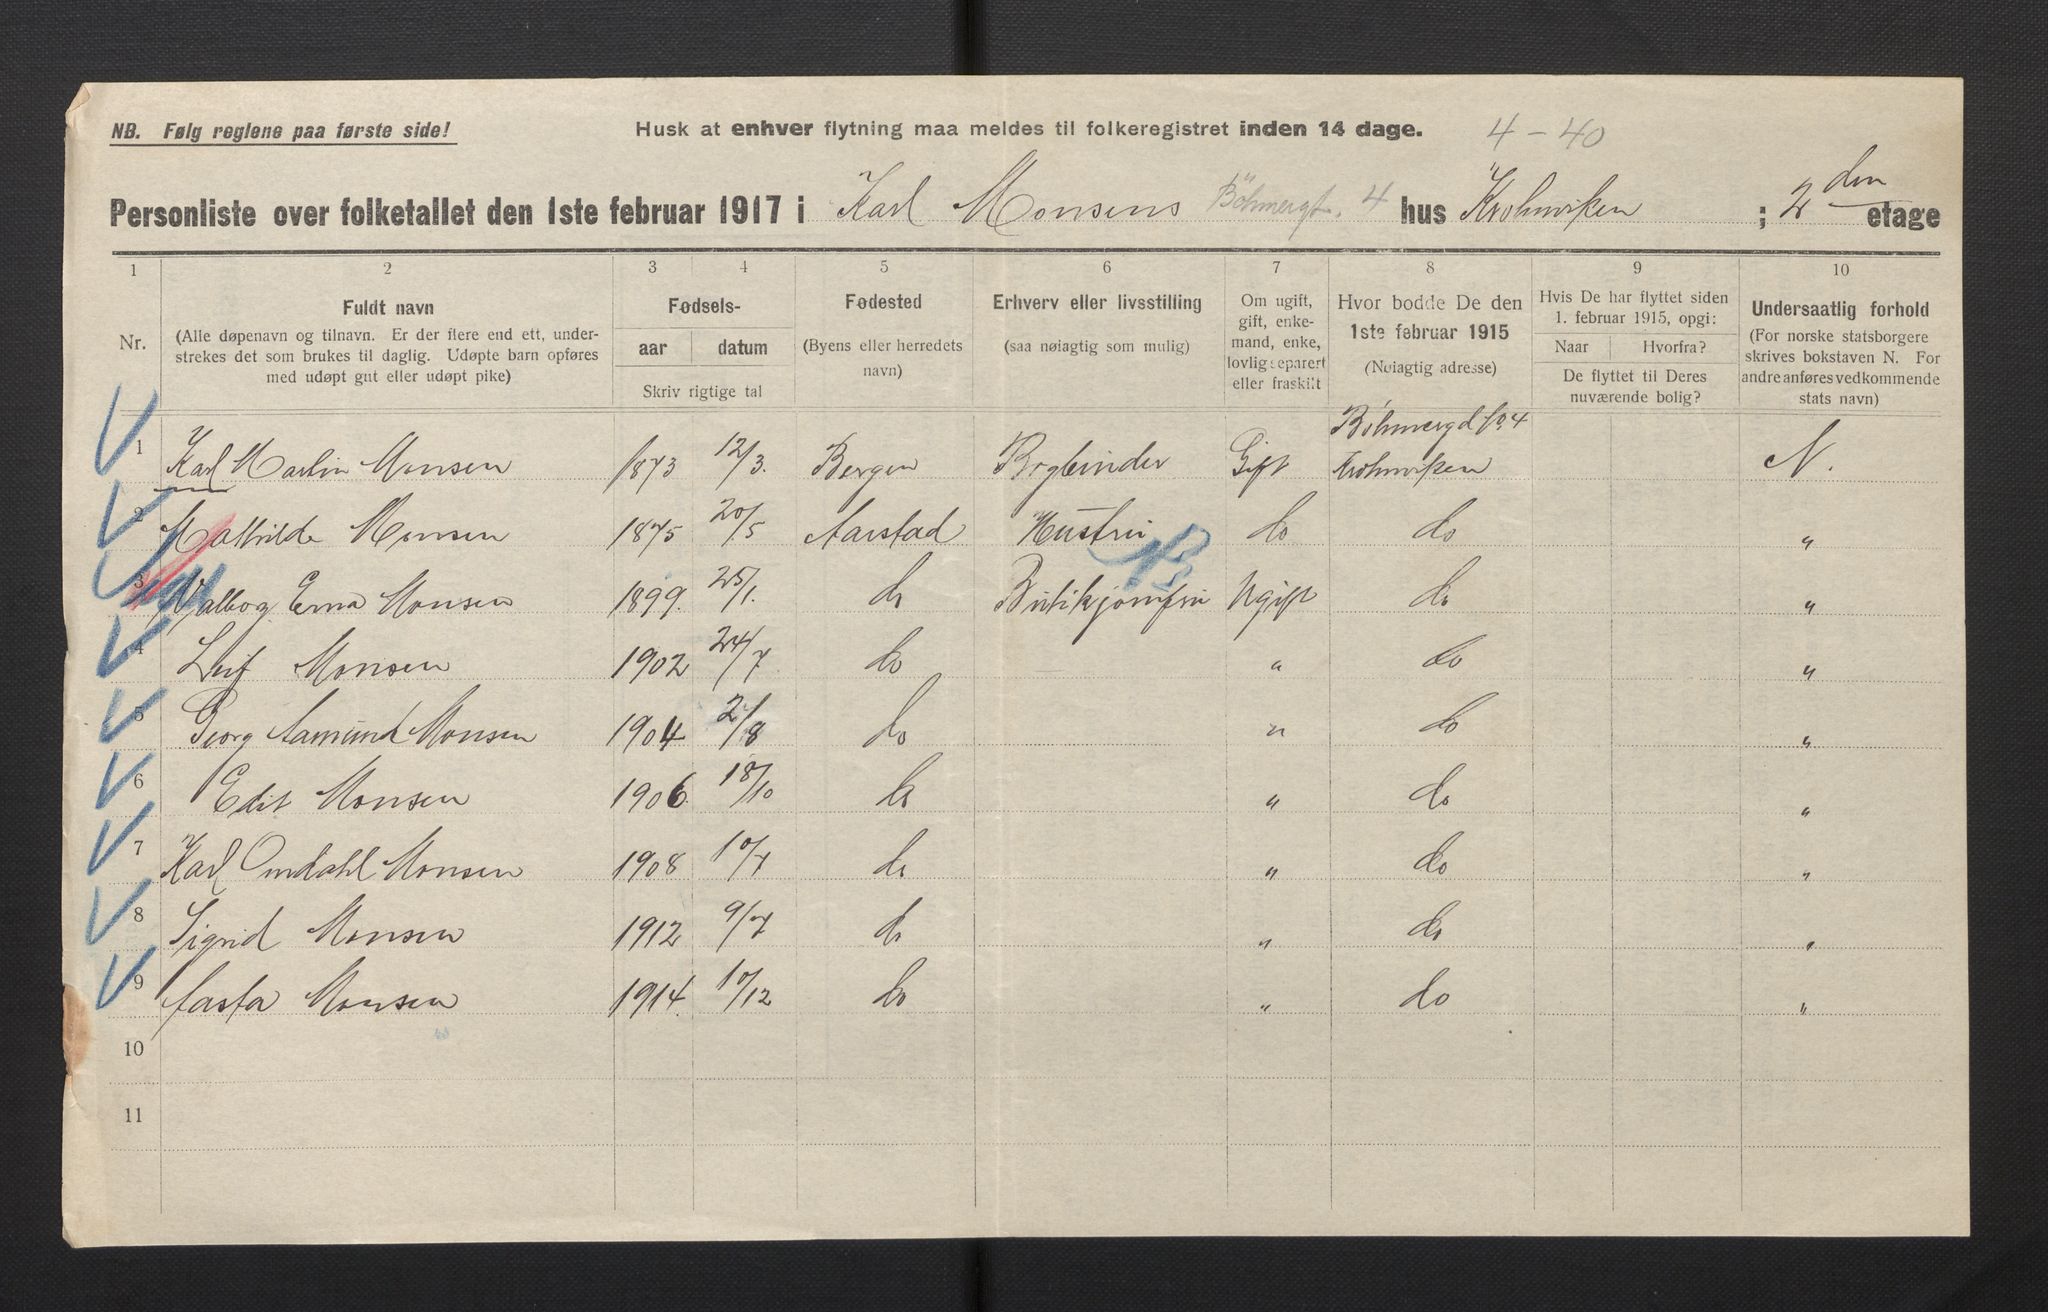 NB. Følg reglene paa første side!
Husk at enhver flytning maa meldes til folkeregistret inden 14 dage.
4 - 40
Personliste over folketallet den 1ste februar 1917 i Karl Monsens Böhmergt. 4 hus Krohnviken ; 2 den etage
1 2 3 4 5 6 7 8 9 10
Nr.
Fuldt navn
(Alle døpenavn og tilnavn. Er der flere end ett, under-
strekes det som brukes til daglig. Udøpte barn opføres
med udøpt gut eller udøpt pike)
Fødsels-
aar datum
Skriv rigtige tal
Fødested
(Byens eller herredets
navn)
Erhverv eller livsstilling
(saa nøiagtig som mulig)
Om ugift,
gift, enke-
mand, enke,
lovlig separert
eller fraskilt
Hvor bodde De den
1ste februar 1915
(Nøiagtig adresse)
Hvis De har flyttet siden
1. februar 1915, opgi:
Naar Hvorfra?
De flyttet til Deres
nuværende bolig?
Undersaatlig forhold
(For norske statsborgere
skrives bokstaven N. For
andre anføres vedkommende
stats navn)
Böhmergd No 4
1 Karl Martin Monsen 1873 12/3. Bergen Bogbinder Gift Krohnviken N.
2 Mathilde Monsen 1875 20/5 Aarstad Hustru do do "
3 Valbog Erna Monsen 1899. 25/1. do Butikjomfru Ugift do "
4 Leif Monsen 1902 24/7 do " do "
5 Georg Aamund Monsen 1904 2/8 do " do "
6 Edit Monsen 1906. 18/10 do " do "
7 Karl Omdahl Monsen 1908 10/7 do " do "
8 Sigrid Monsen 1912 9/7 do " do "
9 Aasta Monsen 1914. 10/12 do " do "
10
11